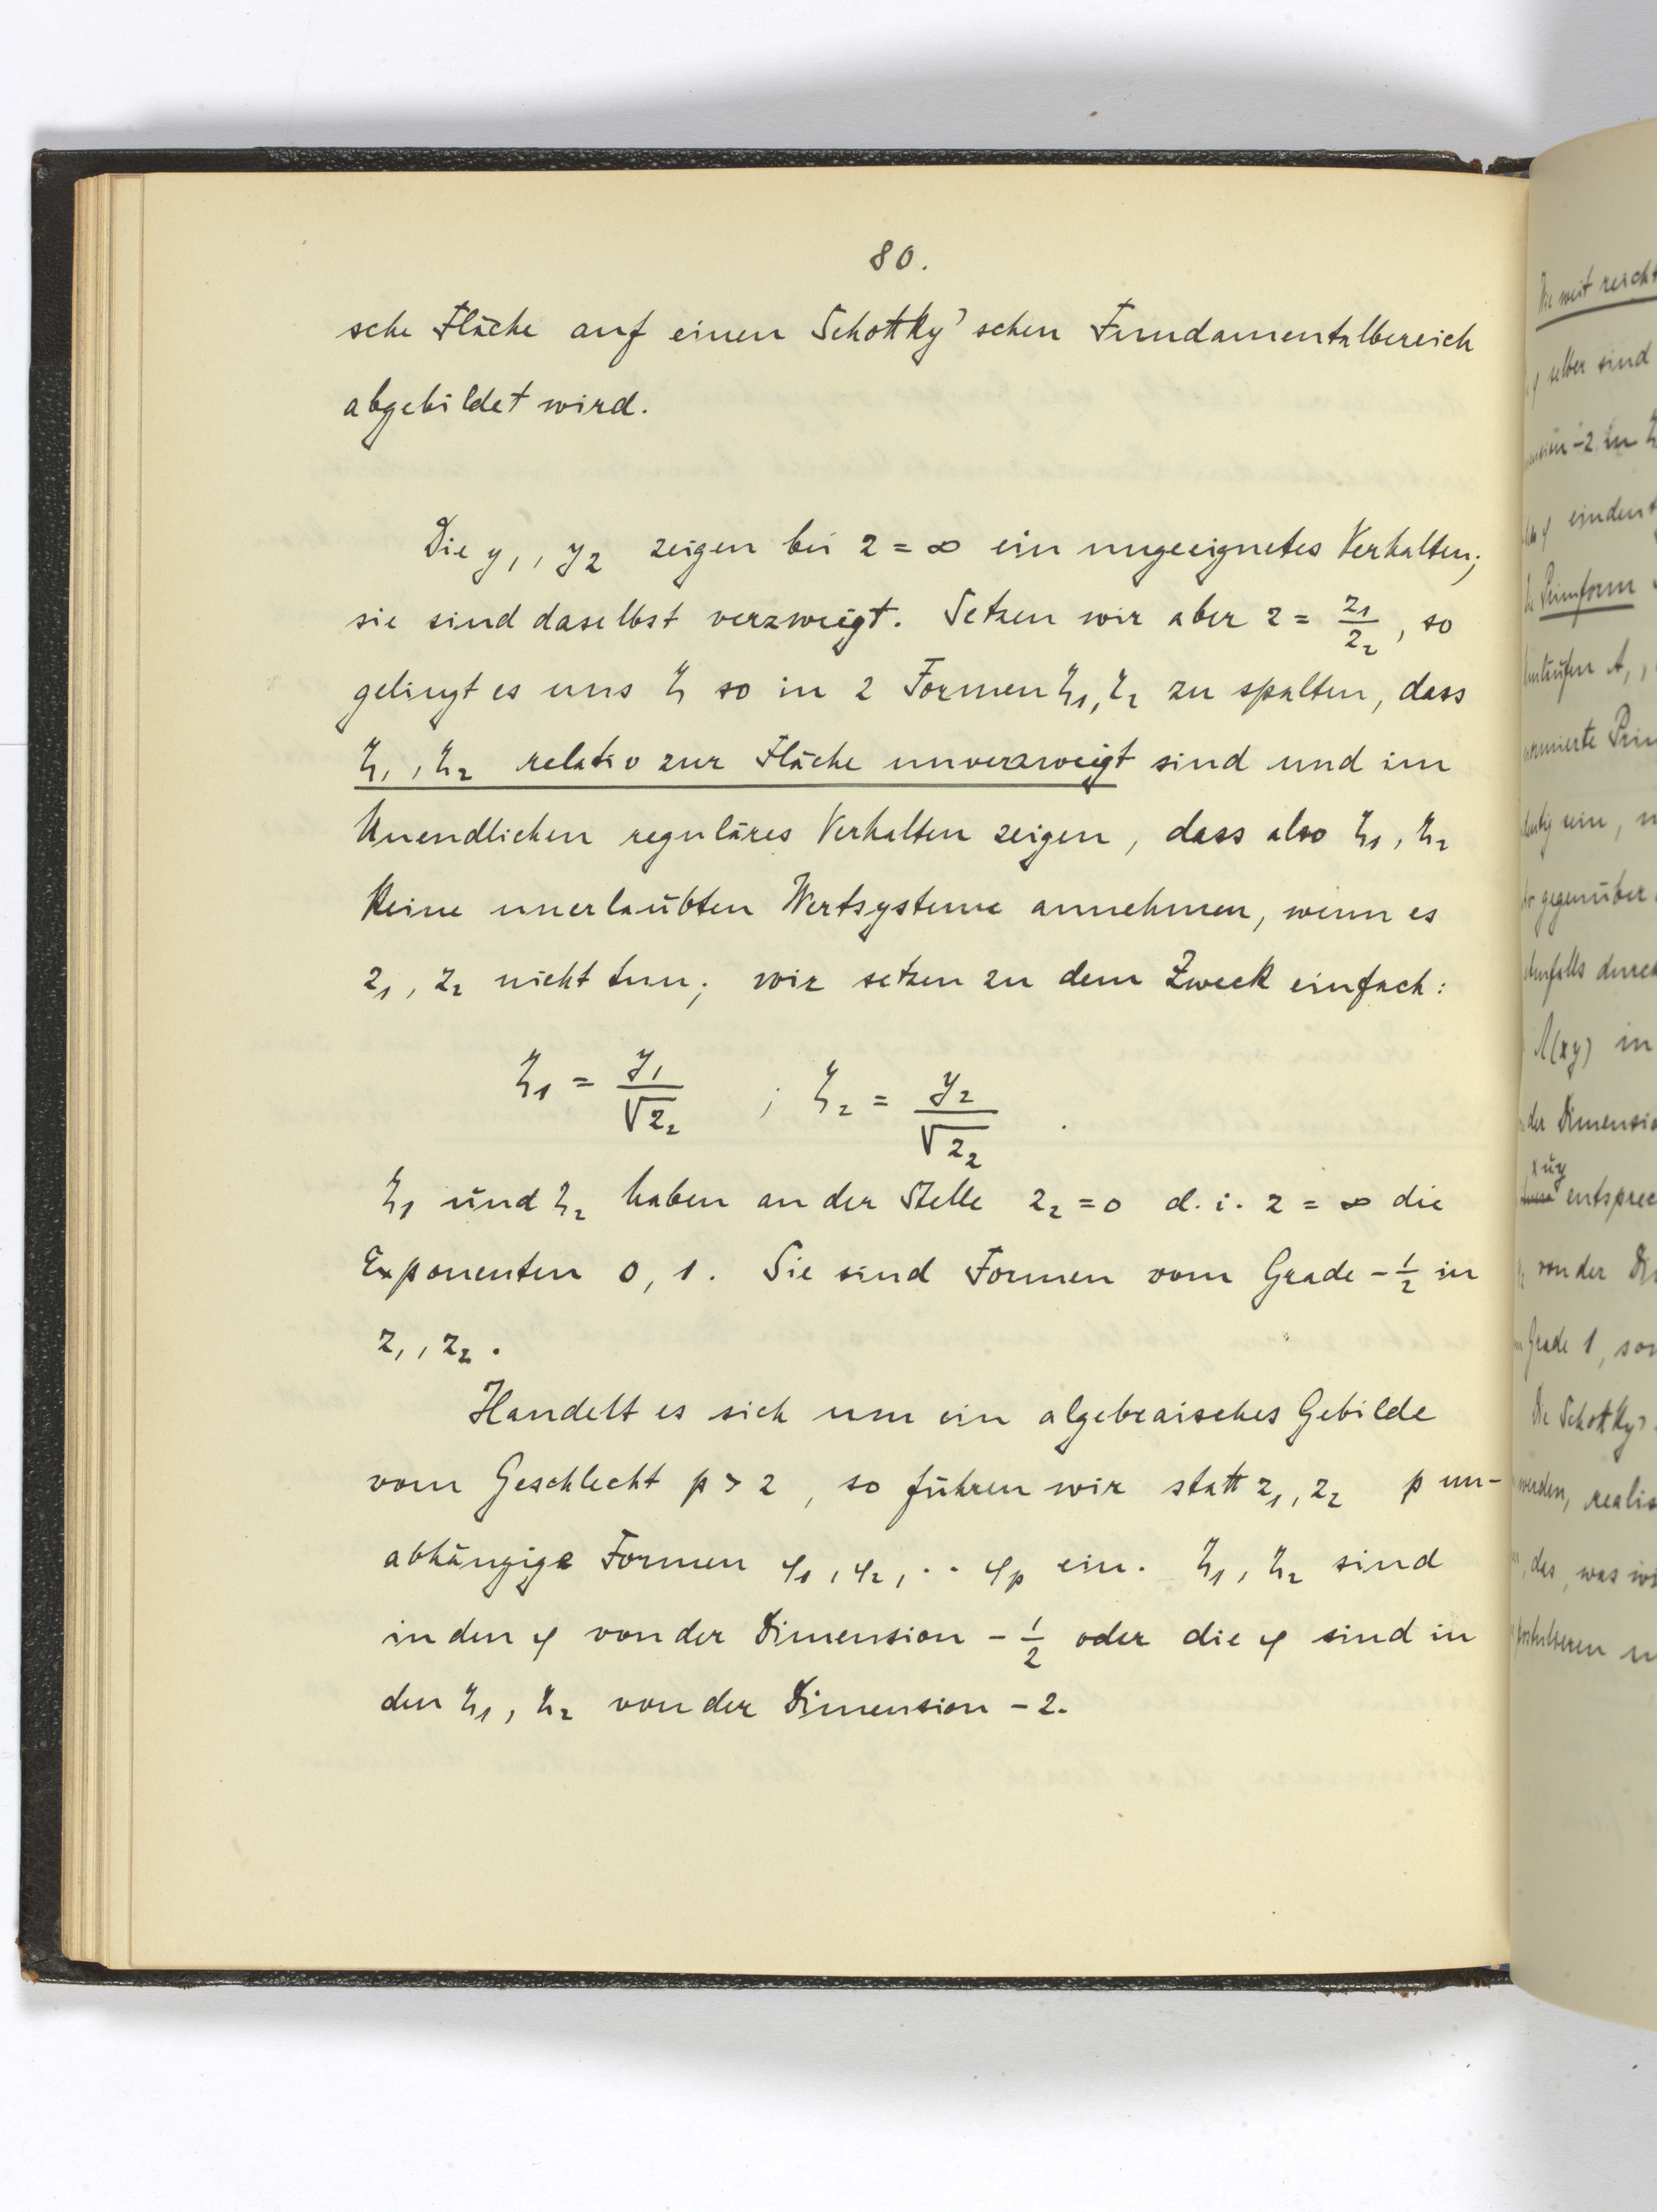 80.
sche Fläche auf einen Schottky'schen Fundamentalbereich
abgebildet wird.
Die y₁, y₂ zeigen bei z = ∞ ein ungeeignetes Verhalten;
sie sind daselbst verzweigt. Setzen wir aber z = z₁/z₂, so
gelingt es uns ζ so in 2 Formen ζ₁, ζ₂ zu spalten, dass
ζ₁, ζ₂ relativ zur Fläche unverzweigt sind und im
Unendlichen reguläres Verhalten zeigen, dass also ζ₁, ζ₂
keine unerlaubten Wertsysteme annehmen, wenn es
z₁, z₂ nicht tun; wir setzen zu dem Zweck einfach:
ζ₁ = y₁/√z₂ ; ζ₂ = y₂/√z₂ .
ζ₁ und ζ₂ haben an der Stelle z₂ = 0 d.i. z = ∞ die
Exponenten 0, 1. Sie sind Formen vom Grade -1/2 in
z₁, z₂.
Handelt es sich um ein algebraisches Gebilde
vom Geschlecht p > 2, so führen wir statt z₁, z₂ p un-
abhängige Formen φ₁, φ₂, .. φₚ ein. ζ₁, ζ₂ sind
in den φ von der Dimension -1/2 oder die φ sind in
den ζ₁, ζ₂ von der Dimension -2.
selber sind
-2 in ζ
Primform
gegenüber
in
der
entsprec
von der
Grade 1, so
Die Schottky'
werden, realis
das, was wi